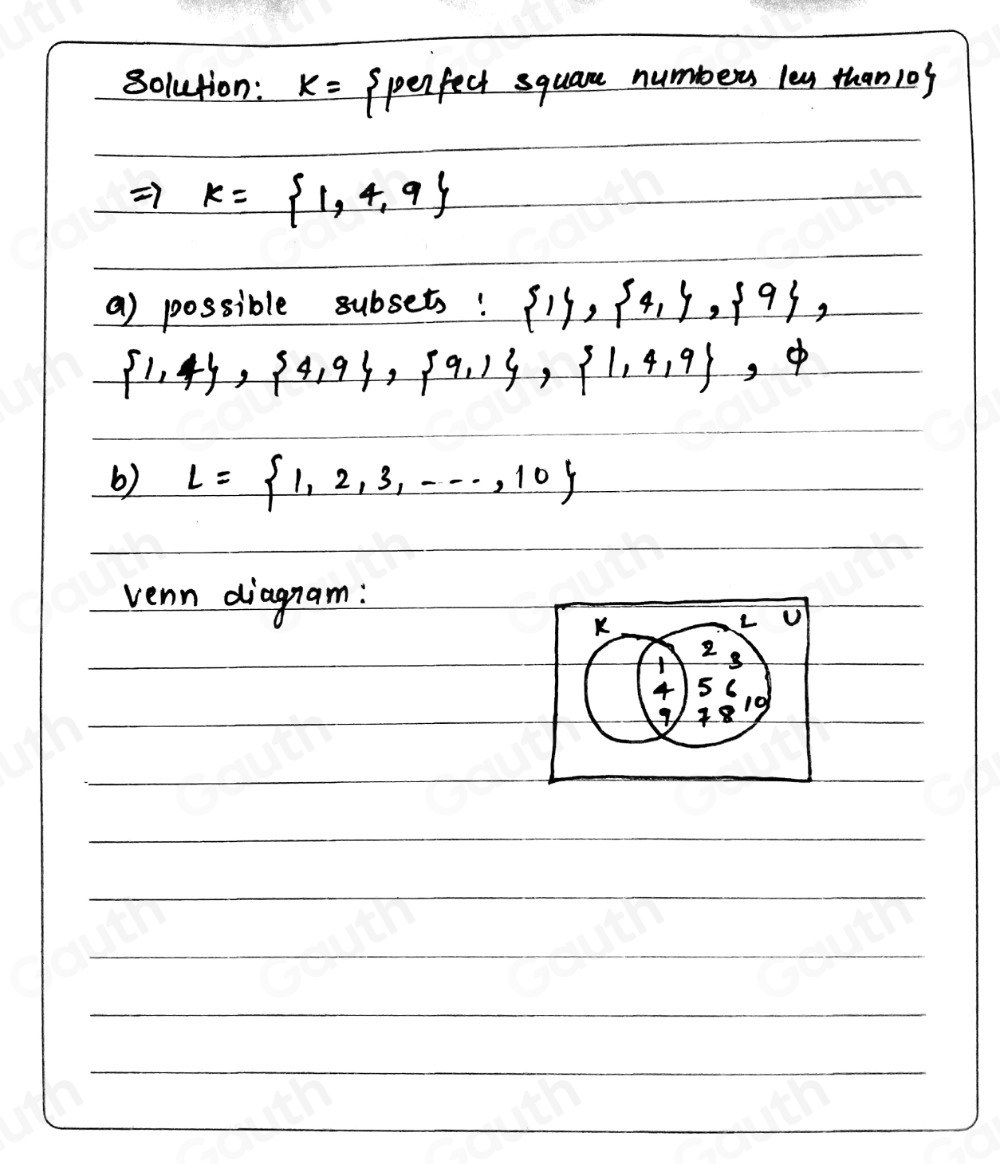 Solution: K = {perfect square numbers les than 10}
=> K = {1, 4, 9}
a) possible subsets : {1}, {4,}, {9},
{1, 4}, {4,9}, {9,1}, {1,4,9}, ϕ
b) L = {1, 2, 3, ----, 10}
Venn diagram:
K L U
1 2 3
4 5 6 10
9 7 8